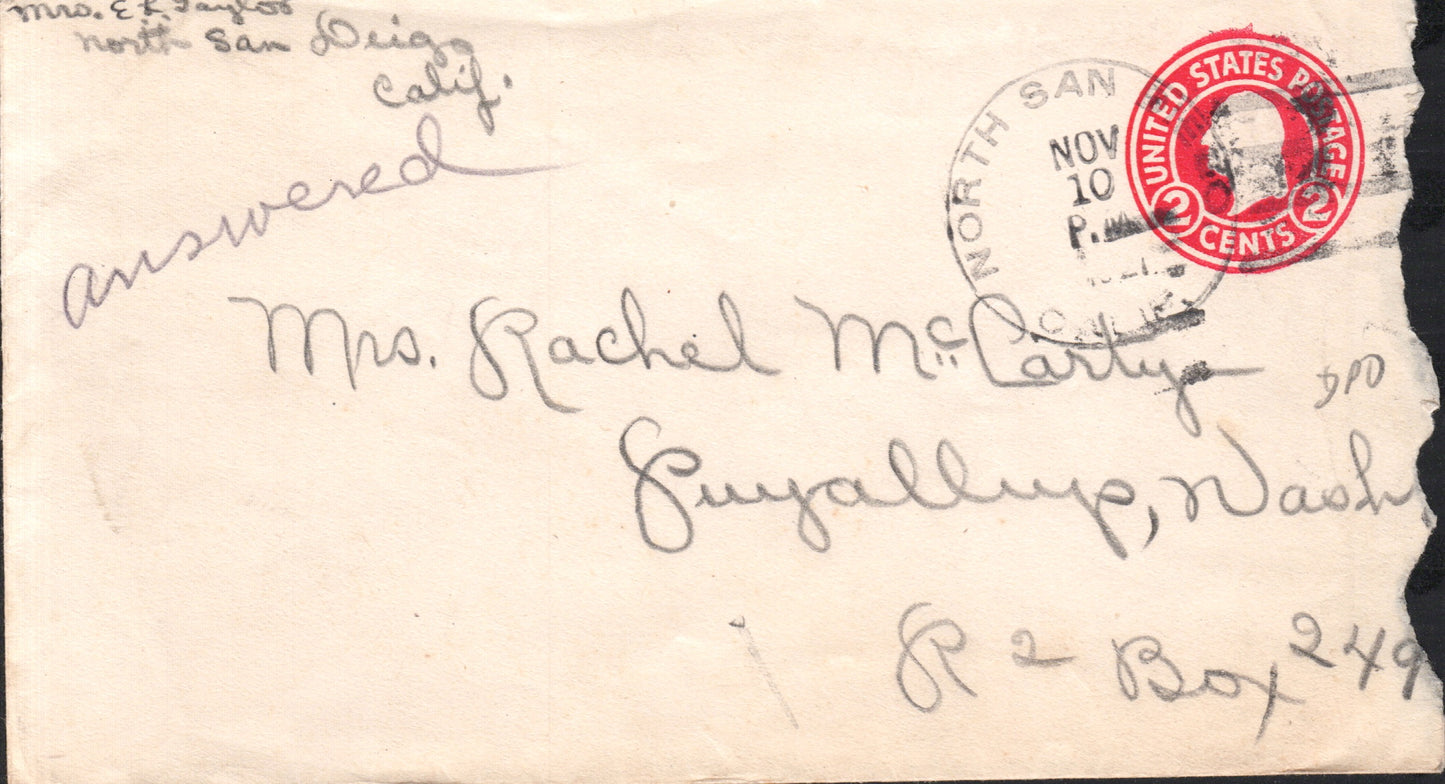 Mrs. E L Taylor
North San Deigo
Calif.
answered
NORTH SAN
NOV
10
P.M.
CALIF.
UNITED STATES POSTAGE
2 CENTS 2
Mrs. Rachel McCarty
Puyallup, Wash
R 2 Box 249